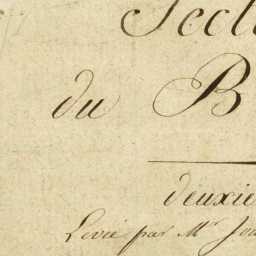 Secti
du B
deuxie
Levée par Mr Jou